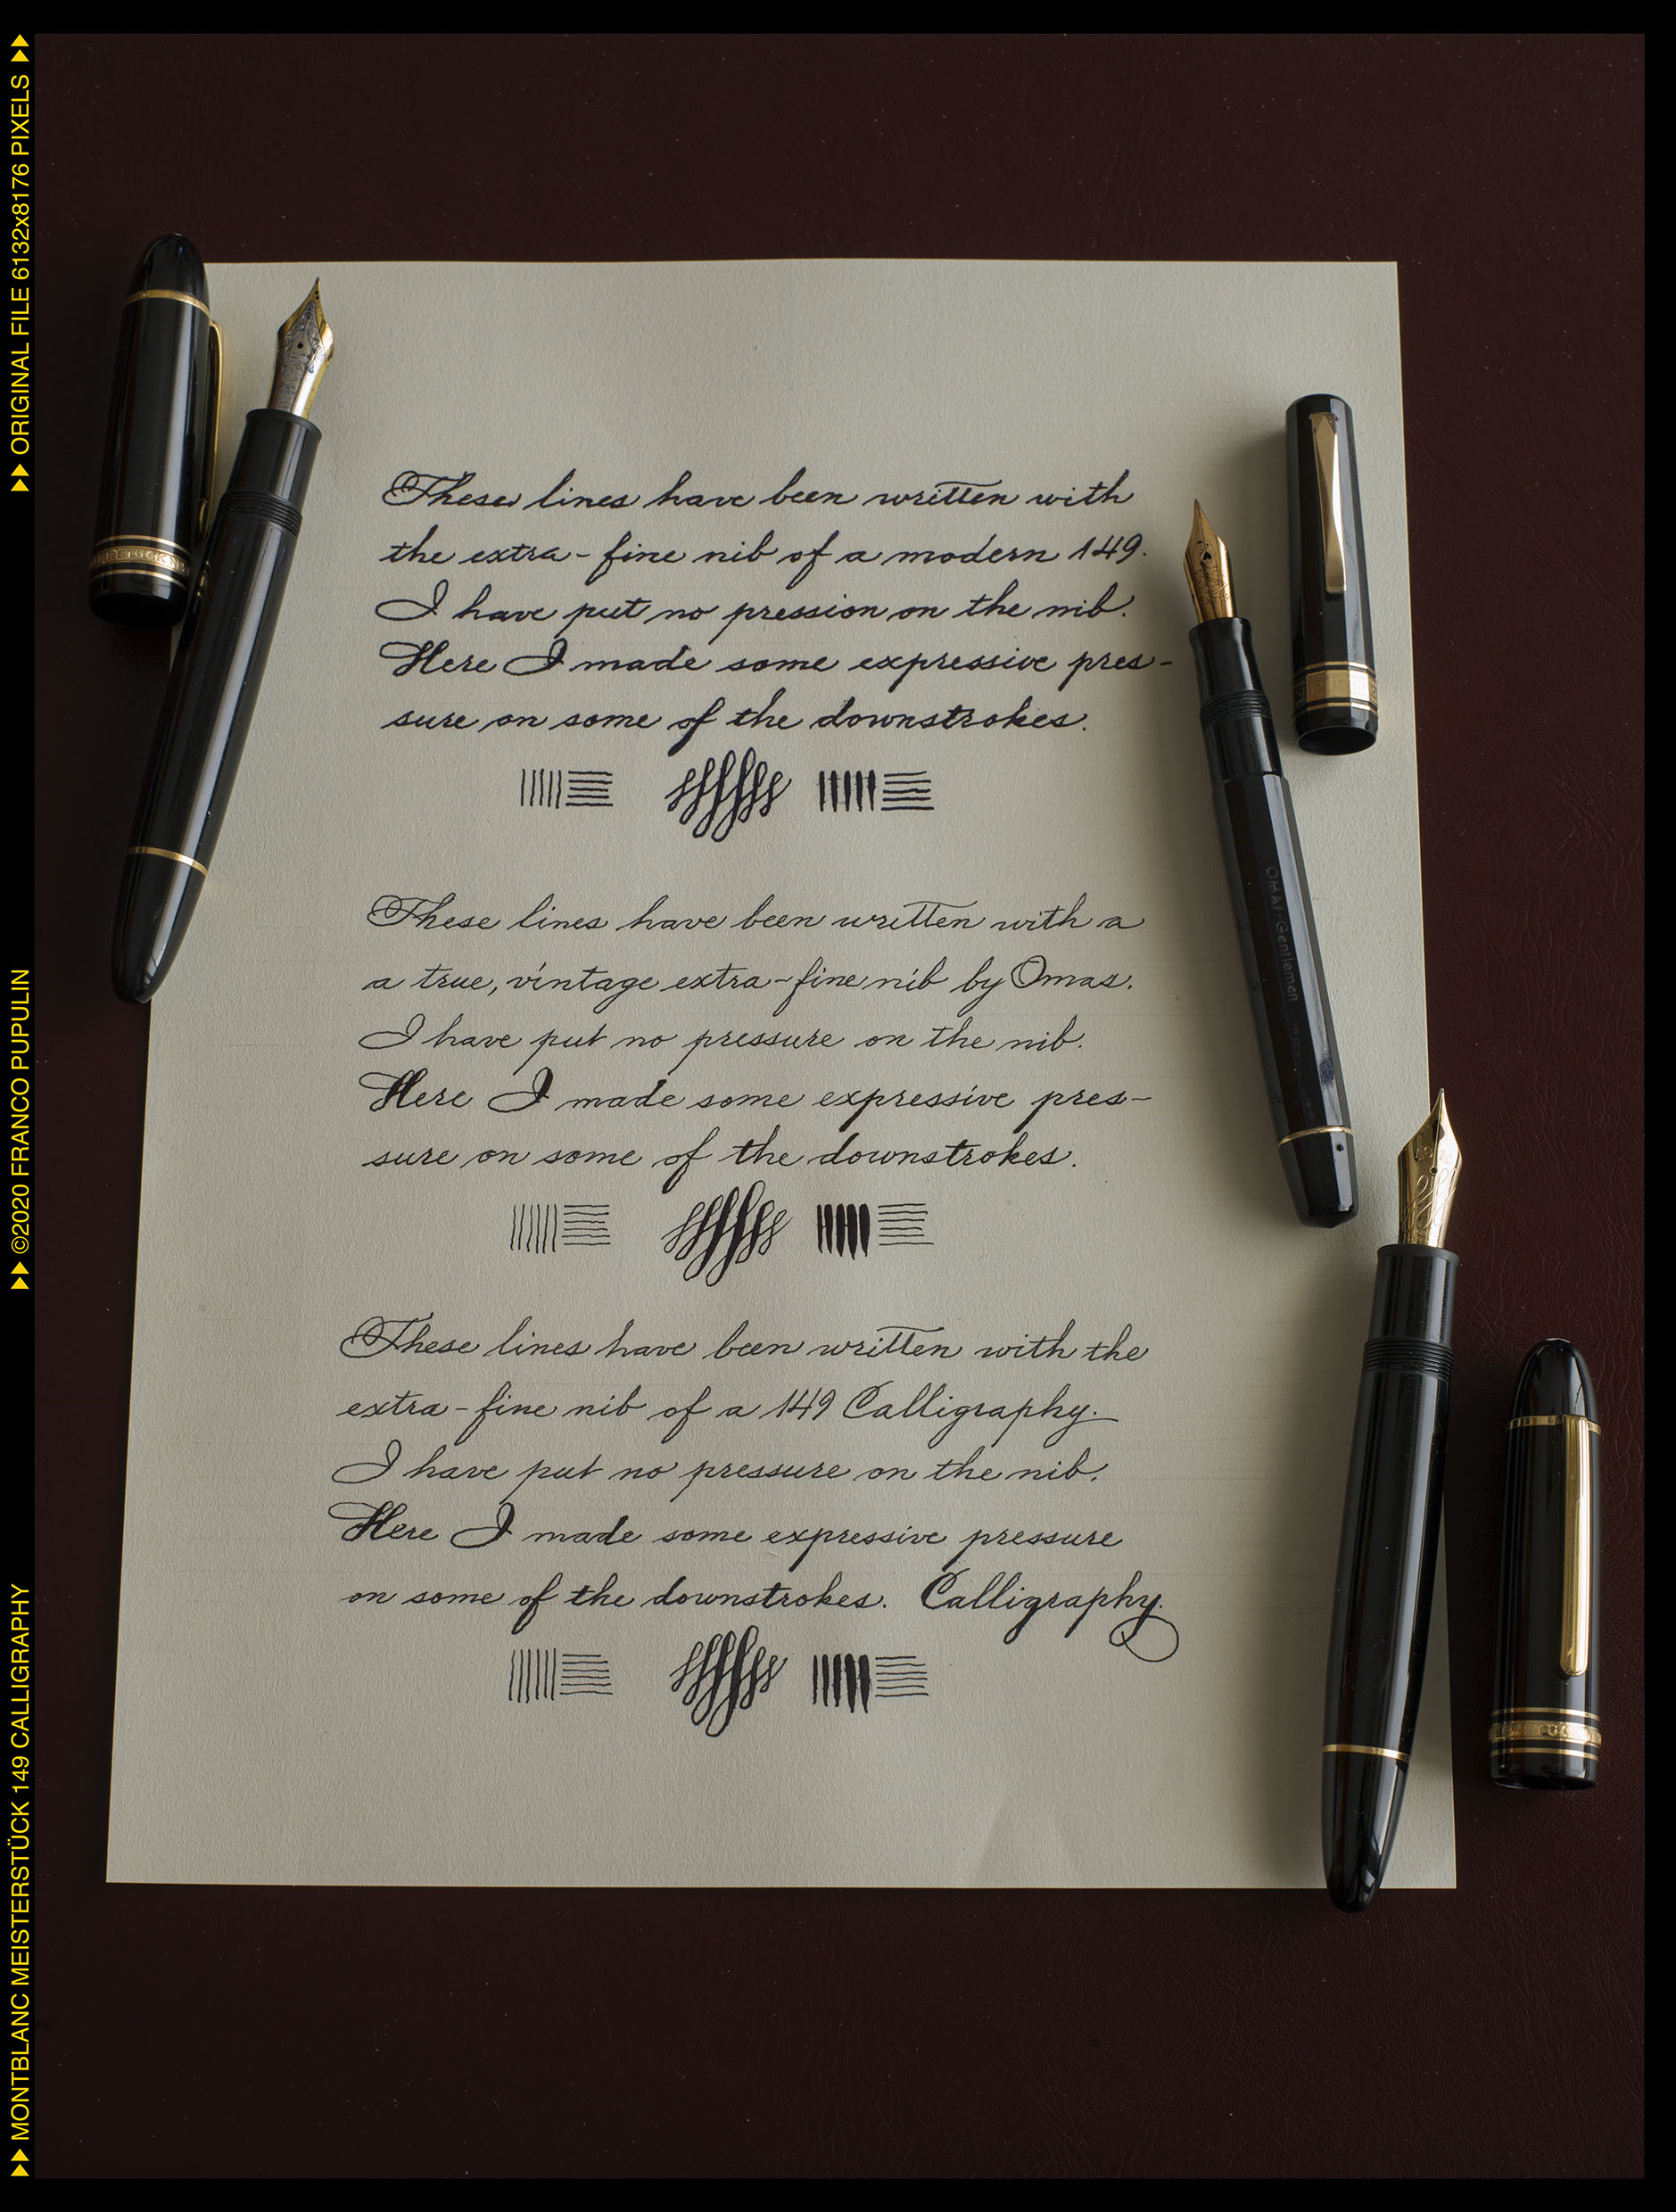 These lines have been written with
the extra-fine nib of a modern 149.
I have put no pression on the nib.
Here I made some expressive pres-
sure on some of the downstrokes.
These lines have been written with a
a true, vintage extra-fine nib by Omas.
I have put no pressure on the nib.
Here I made some expressive pres-
sure on some of the downstrokes.
These lines have been written with the
extra-fine nib of a 149 Calligraphy.
I have put no pressure on the nib.
Here I made some expressive pressure
on some of the downstrokes. Calligraphy.
OMAS-Gentlemen
ORIGINAL FILE 6132x8176 PIXELS
©2020 FRANCO PUPULIN
MONTBLANC MEISTERSTÜCK 149 CALLIGRAPHY